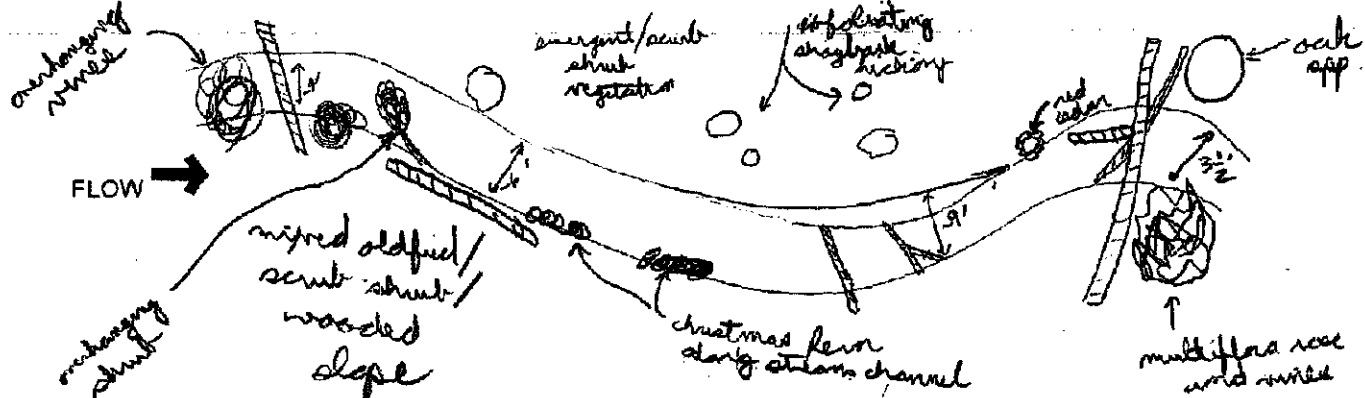 overhanging
vines
4'
emergent/scurb
shrub
vegetation
exfoliating
shagbark
hickory
oak
spp.
red
cedar
3 1/2'
FLOW
6'
9'
mixed oldfield/
scrub shrub/
wooded
slope
overhanging
shrub
christmas fern
along stream channel
multiflora rose
and vines